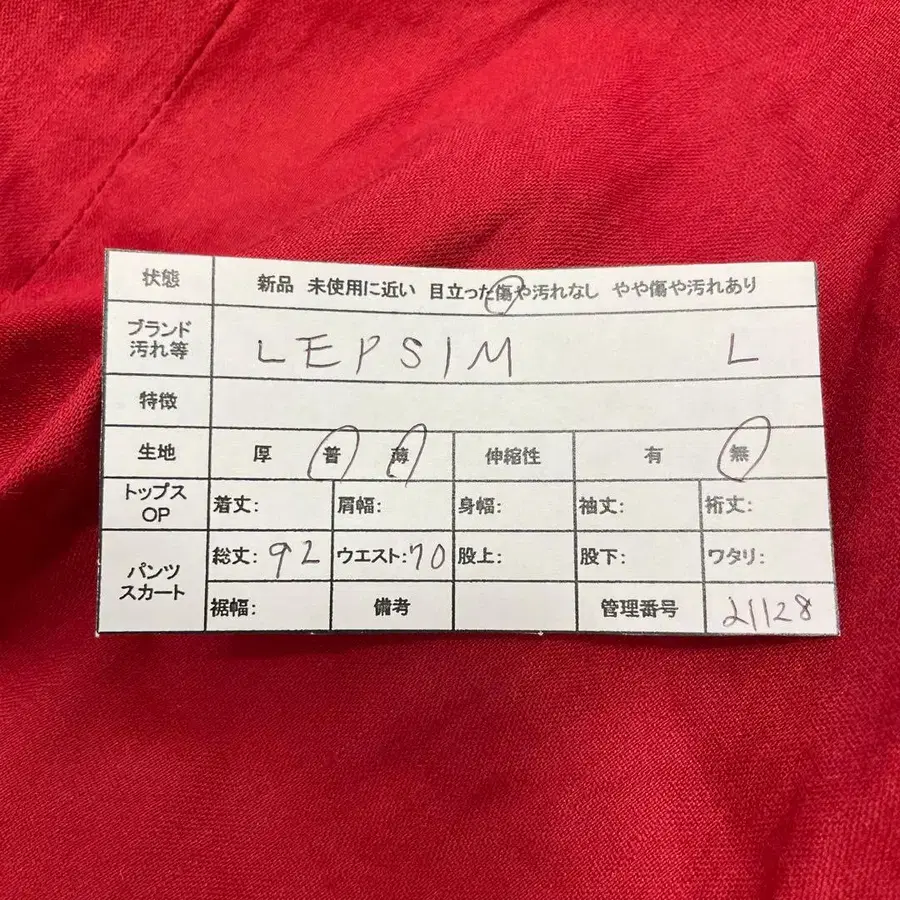 状態 新品 未使用に近い 目立った傷や汚れなし やや傷や汚れあり
ブランド
汚れ等 LEPSIM L
特徴
生地 厚 普 薄 伸縮性 有 無
トップス
OP 着丈: 肩幅: 身幅: 袖丈: 裄丈:
パンツ
スカート 総丈:92 ウエスト:70 股上: 股下: ワタリ:
裾幅: 備考 管理番号 21128